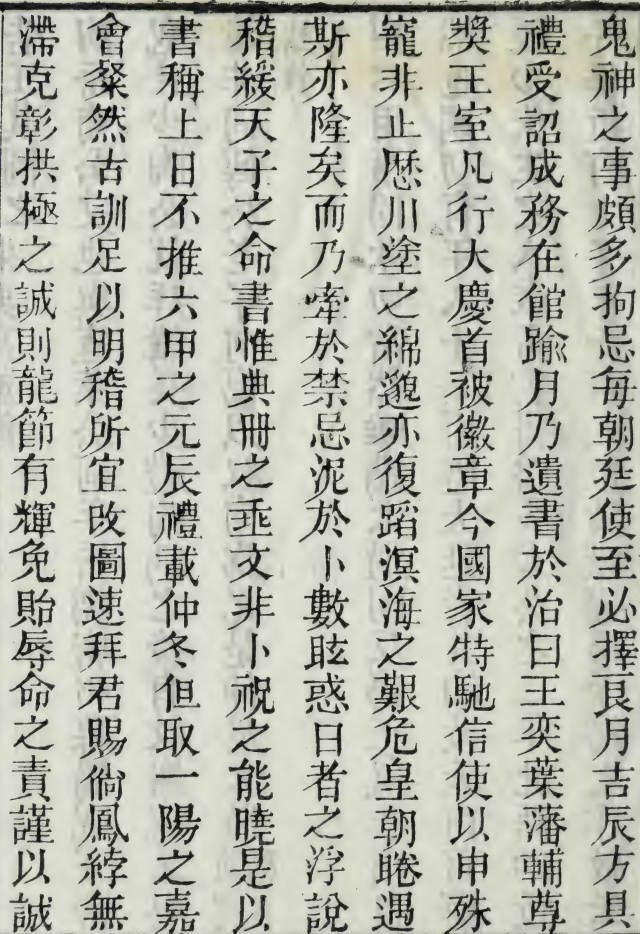 鬼神之事頗多拘忌每朝廷使至必擇良月吉辰方具
禮受詔成務在館踰月乃遺書於治曰王奕葉藩輔尊
奬王室凡行大慶首被徽章今國家特馳信使以申殊
寵非止歷川塗之綿邈亦復蹈溟海之艱危皇朝睠遇
斯亦隆矣而乃牽於禁忌泥於卜數眩惑日者之浮說
稽緩天子之命書惟典冊之垂文非卜祝之能曉是以
書稱上日不推六甲之元辰禮載仲冬但取一陽之嘉
會粲然古訓足以明稽所宜改圖速拜君賜倘鳳綍無
滯克彰拱極之誠則龍節有輝免貽辱命之責謹以誠